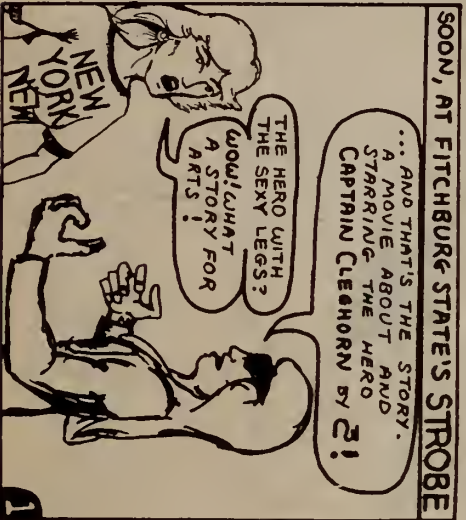 SOON, AT FITCHBURG STATE'S STROBE
... AND THAT'S THE STORY.
A MOVIE ABOUT AND
STARRING THE HERO
CAPTAIN CLEGHORN BY Z!
THE HERO WITH
THE SEXY LEGS?
WOW! WHAT
A STORY FOR
ARTS!
NEW
YORK
NEW
1